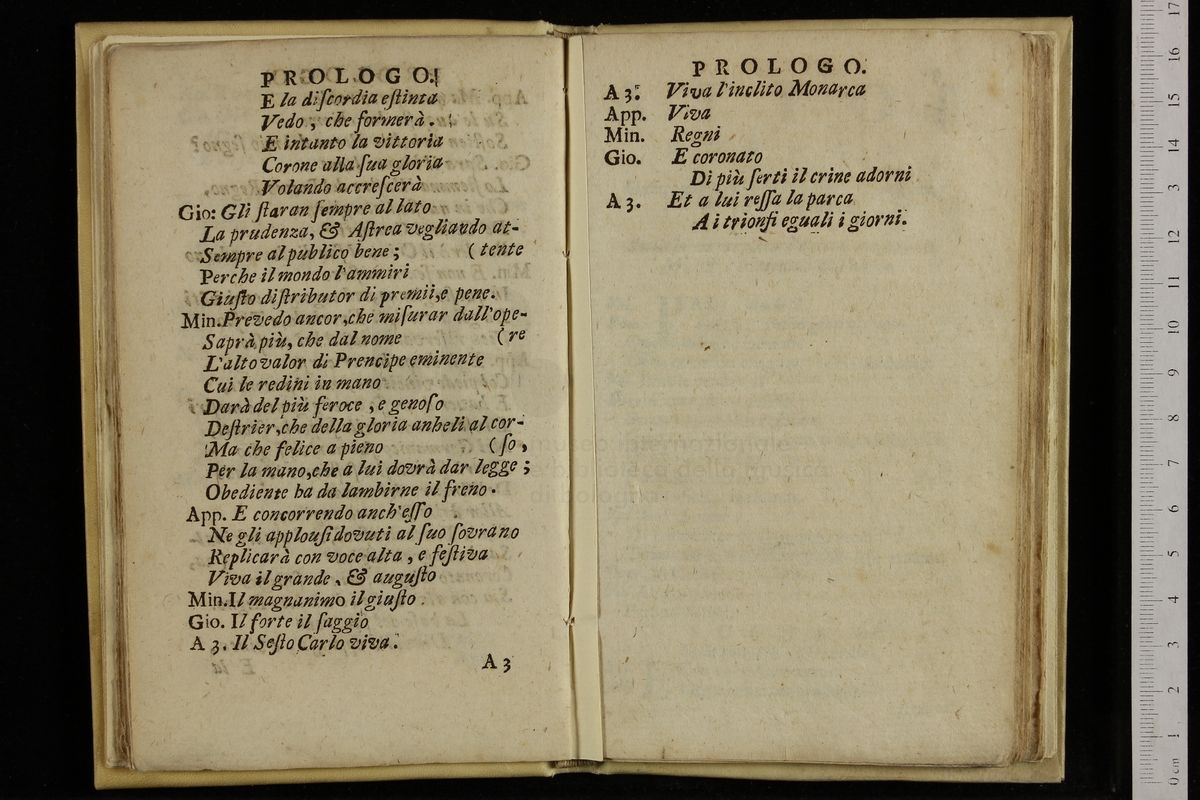 PROLOGO.
E la diſcordia eſtinta
Vedo, che formerà.
E intanto la vittoria
Corone alla ſua gloria
Volando accreſcerà
Gio: Gli ſtaran ſempre al lato
La prudenza, & Aſtrea vegliando at-
Sempre al publico bene; (tente
Perche il mondo l'ammiri
Giuſto diſtributor di premii, e pene.
Min. Prevedo ancor, che miſurar dall'ope-
Saprà più, che dal nome (re
L'alto valor di Prencipe eminente
Cui le redini in mano
Darà del più feroce, e genoſo
Deſtrier, che della gloria anheli al cor-
Ma che felice a pieno (ſo,
Per la mano, che a lui dovrà dar legge;
Obediente ha da lambirne il freno.
App. E concorrendo anch'eſſo
Ne gli applouſi dovuti al ſuo ſovrano
Replicarà con voce alta, e feſtiva
Viva il grande, & auguſto
Min. Il magnanimo il giuſto
Gio. Il forte il ſaggio
A 3. Il Seſto Carlo viva.
A 3
PROLOGO.
A 3. Viva l'inclito Monarca
App. Viva
Min. Regni
Gio. E coronato
Di più ſerti il crine adorni
A 3. Et a lui reſſa la parca
A i trionfi eguali i giorni.
museo internazionale
e biblioteca della musica
di bologna
0 cm 1 2 3 4 5 6 7 8 9 10 11 12 13 14 15 16 17